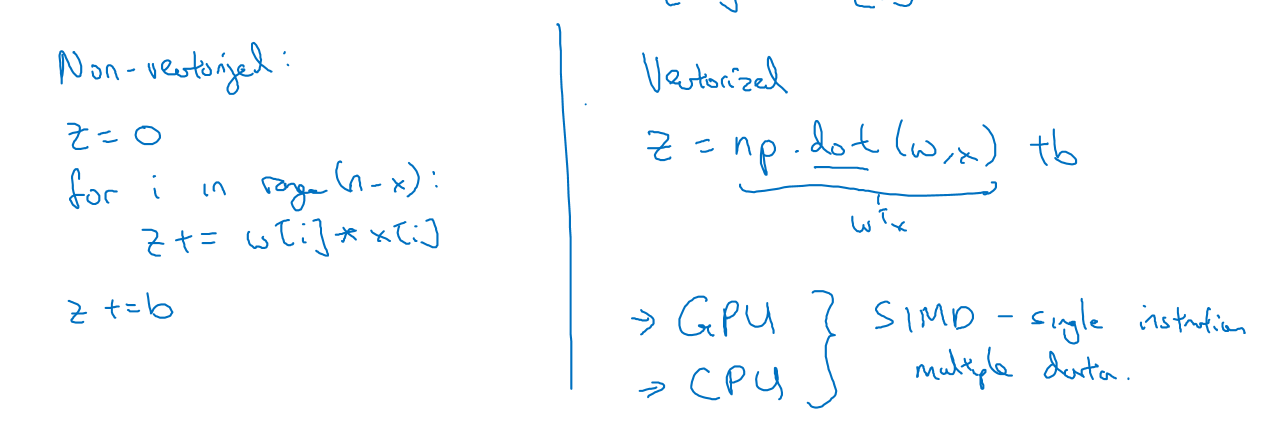 Non-vectorized:
z = 0
for i in range(n-x):
z += w[i] * x[i]
z += b
Vectorized
z = np.dot(w,x) + b
wᵀx
→ GPU } SIMD - single instruction
→ CPU } multiple data.